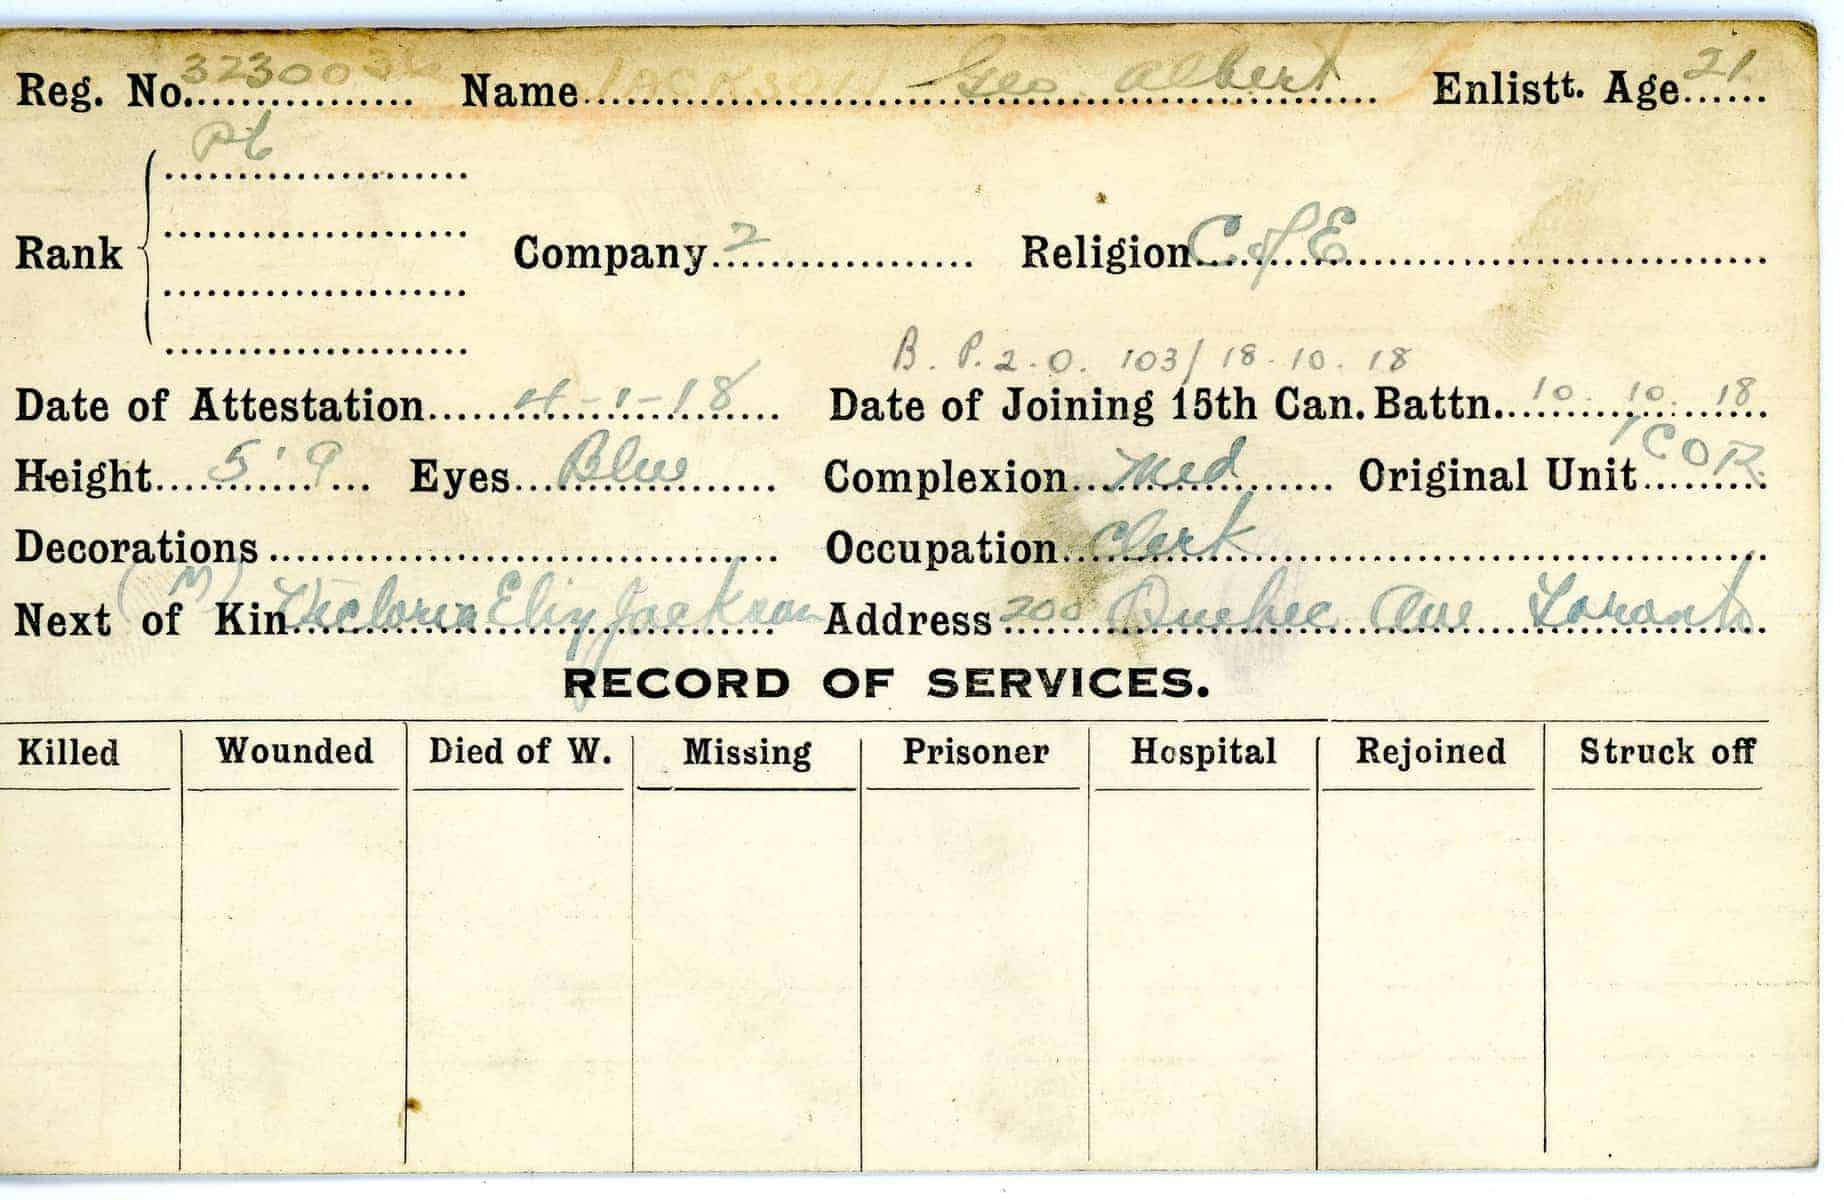 Reg. No. Name JACKSON Geo. Albert Enlistt. Age 21
Pte
Rank Company 2 Religion C of E
B. P. 2. O. 103/18.10.18
Date of Attestation 4-1-18 Date of Joining 15th Can. Battn. 10.10.18
Height 5'9 Eyes Blue Complexion Med Original Unit 1 C O R.
Decorations Occupation Clerk
(M)
Next of Kin Victoria Eliz Jackson Address 200 Quebec Ave Toronto
RECORD OF SERVICES.
Killed Wounded Died of W. Missing Prisoner Hospital Rejoined Struck off